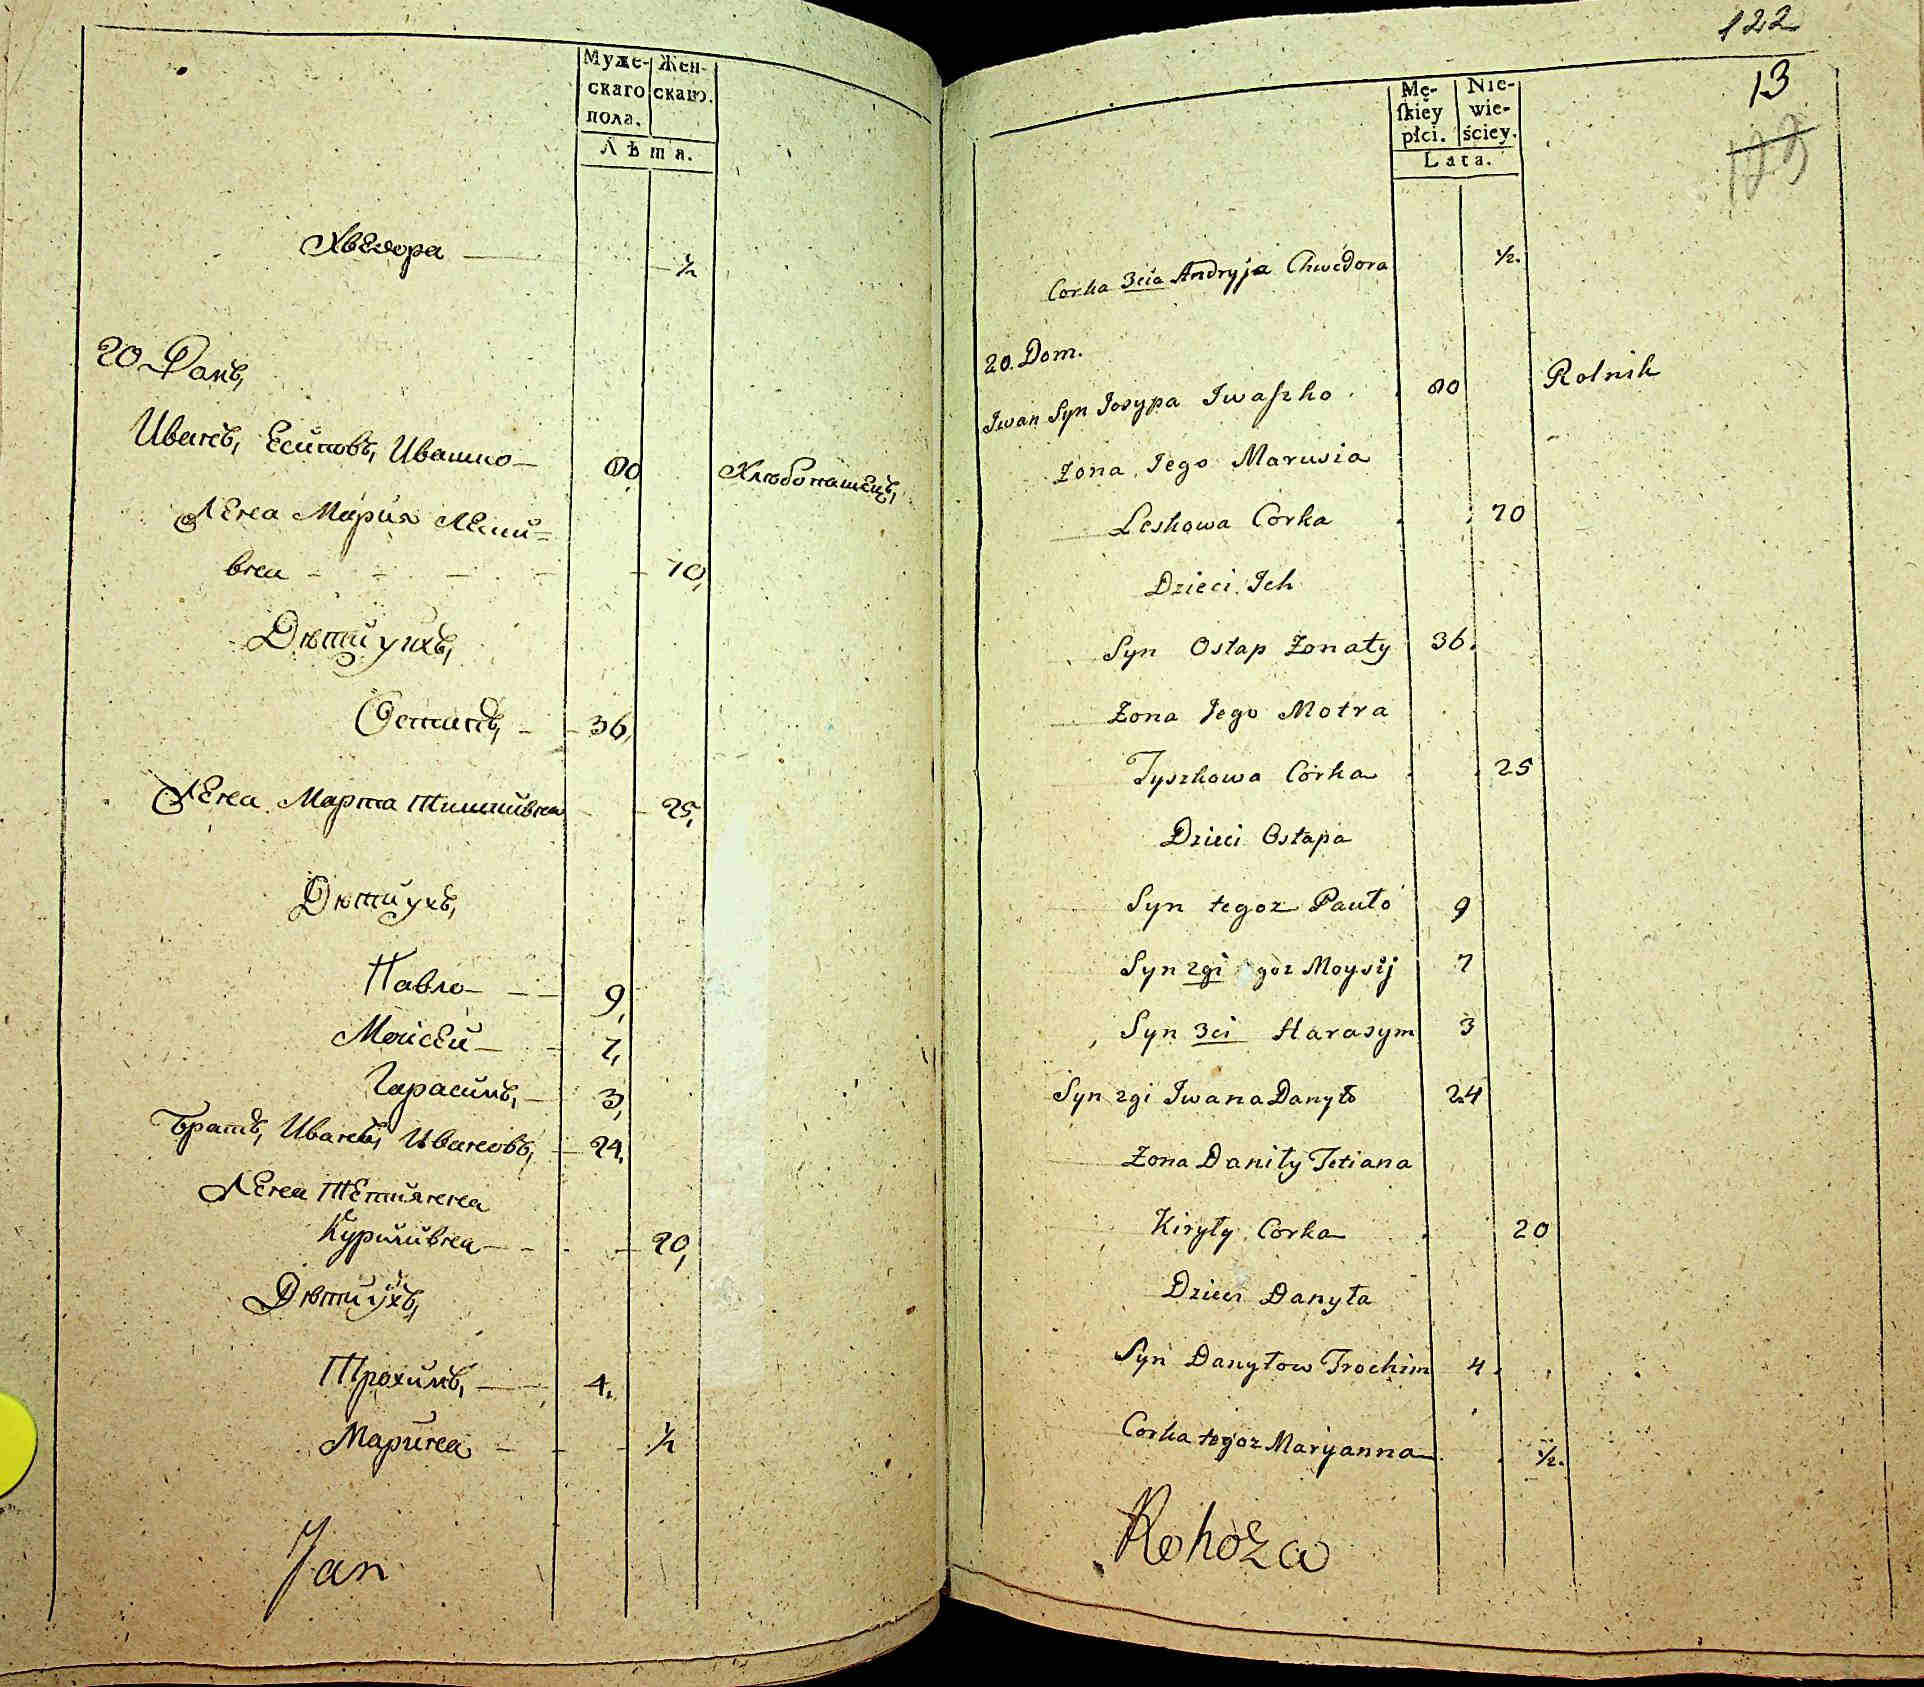 Муже- Жен-
скаго скаго.
пола.
Лѣта.
Хведора — ½
20 Домъ,
Иванъ, Есиповъ, Ивашко — 80,
Хлѣбопашецъ,
Жена Мария Леши-
вна - - - - 70,
Дѣти ихъ,
Остапъ, - 36,
Жена Марта Тишкивна - 25,
Дѣти ихъ,
Павло - - 9,
Мойсей - - 7,
Гарасимъ, - 3,
Братъ, Иванъ, Ивановъ, - 24,
Жена Тетиянна
Куриливна - - - 20,
Дѣти ихъ,
Трохимъ, - 4,
Марина - - - ½
Jan
122
13
123
Mę- Nie-
ſkiéy wie-
płci. ściey.
Lata.
Corka 3cia Andryja Chwedora ½.
20. Dom.
Iwan Syn Josypa Iwaſzko . 80 Rolnik
Żona Jego Marusia
Leskowa Corka . . 70
Dzieci Ich
Syn Ostap Żonaty 36.
Żona Jego Motra
Tyszkowa Córka . . 25
Dzieci Ostapa
Syn tegoz Pawło 9
Syn 2gi goz Moysij 7
Syn 3ci Harasym 3
Syn 2gi Iwana Danyło 24
Żona Daniły Tetiana
Kiryły Corka . 20
Dzieci Danyła
Syn Danyłow Trochim 4.
Corka tegoz Maryanna ½.
Rohoza